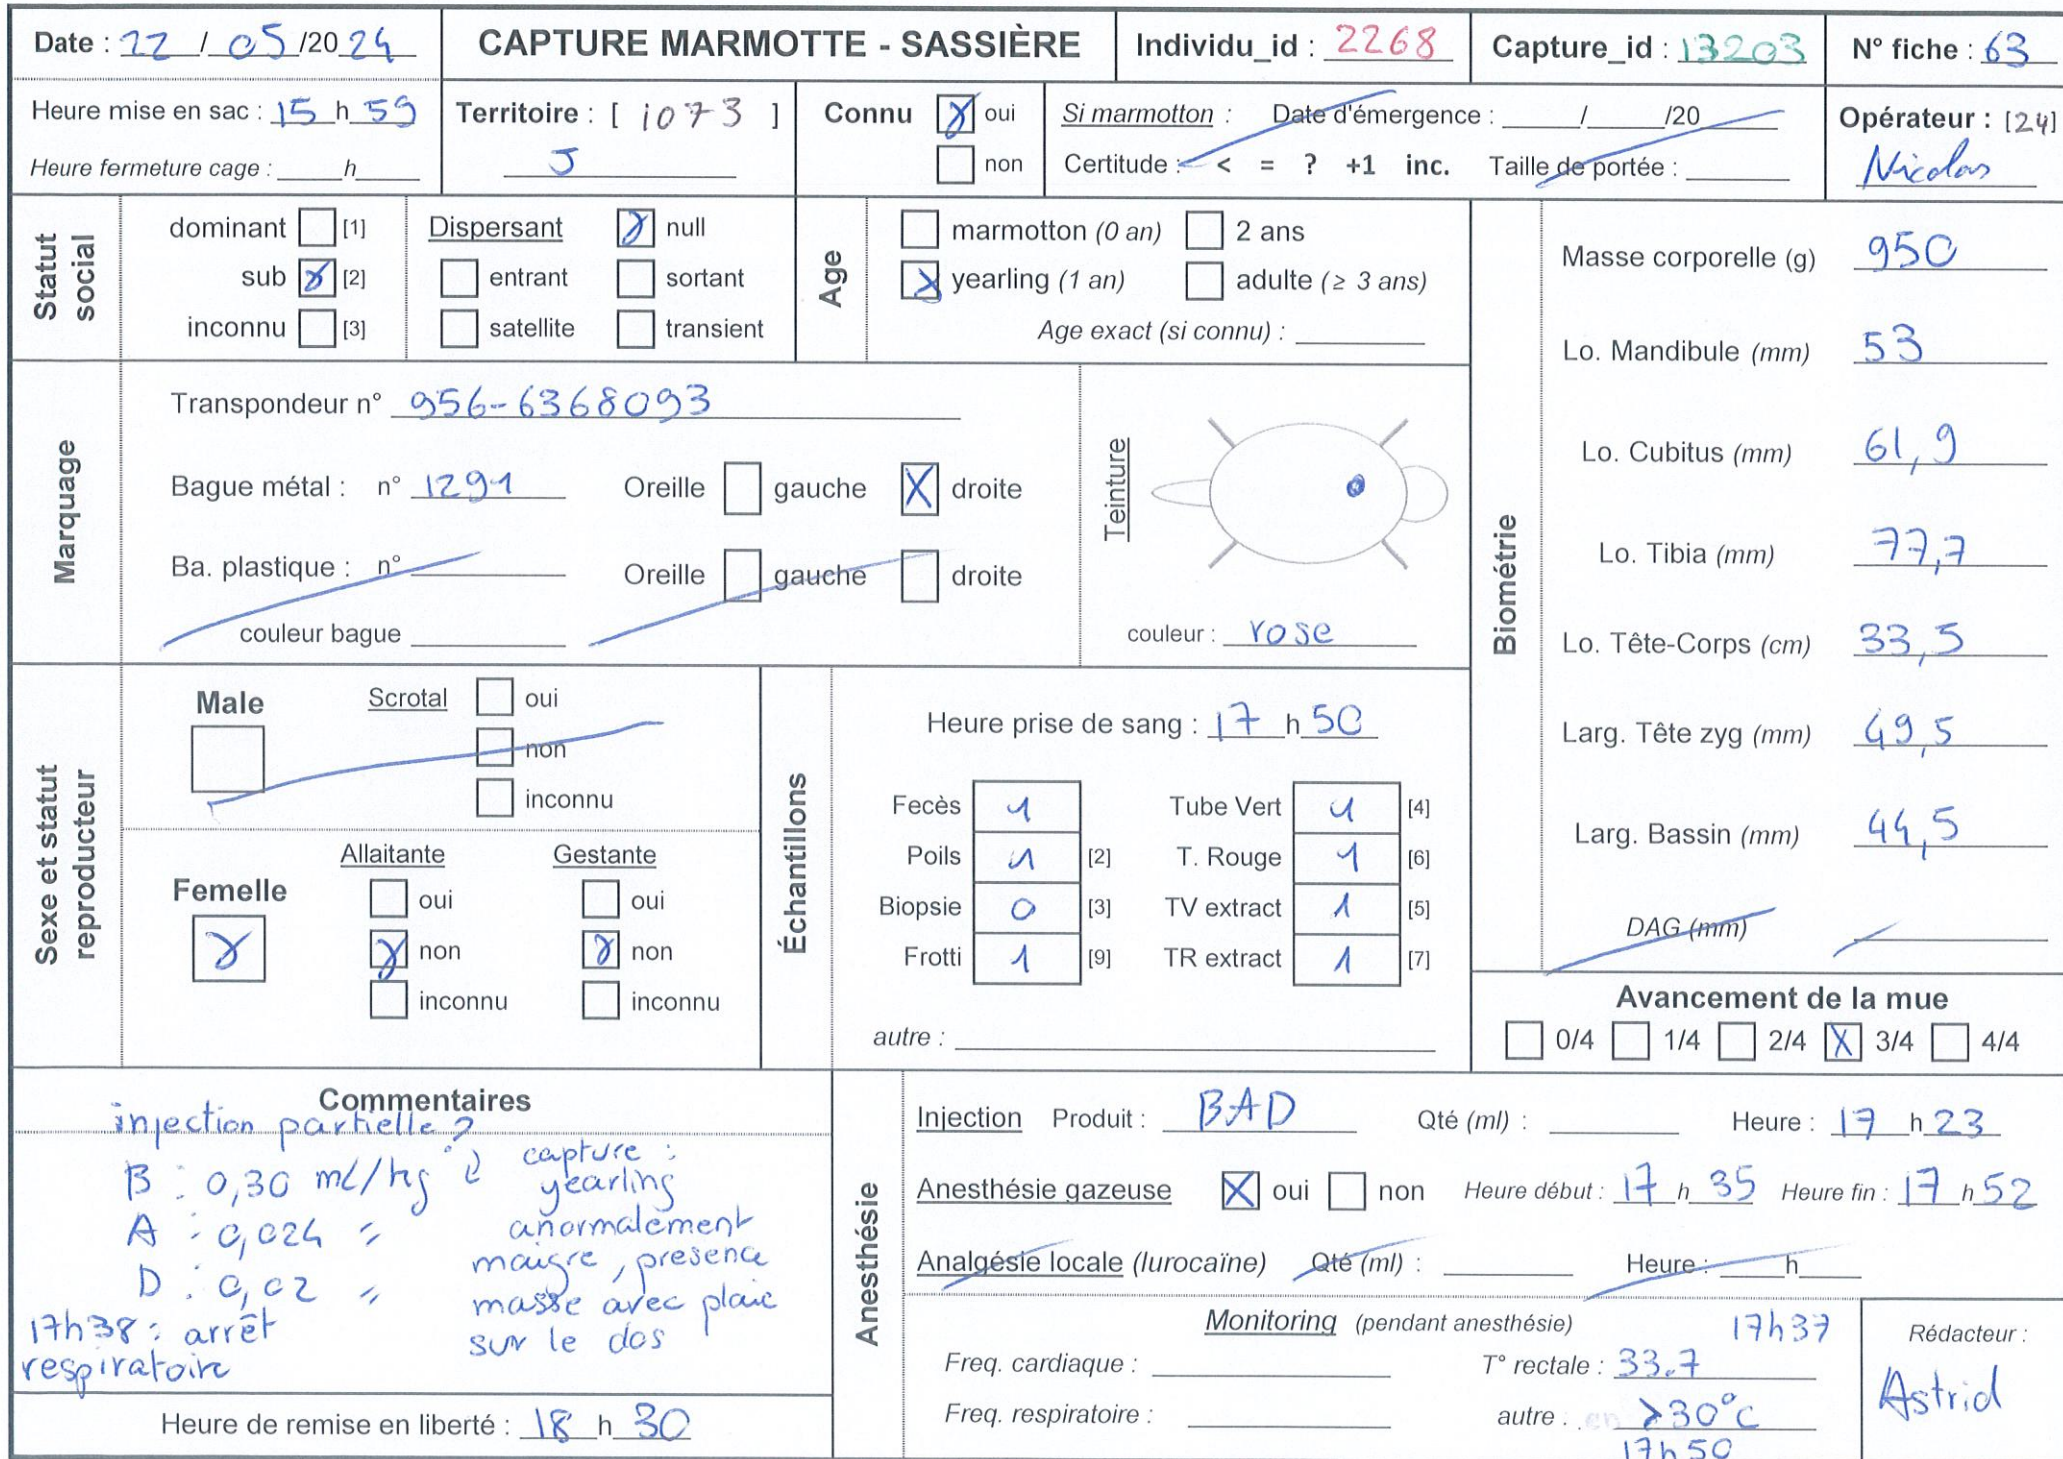 Date : 22 / 05 /20 24
CAPTURE MARMOTTE - SASSIÈRE
Individu_id : 2268
Capture_id : 13203
N° fiche : 63
Heure mise en sac : 15 h 59
Heure fermeture cage : ____h____
Territoire : [ i073 ]
J
Connu X oui
non
Si marmotton : Date d'émergence : _____/_____/20_____
Certitude : < = ? +1 inc. Taille de portée : ______
Opérateur : [24]
Nicolas
Statut social
dominant [1]
sub X [2]
inconnu [3]
Dispersant X null
entrant sortant
satellite transient
Age
marmotton (0 an) 2 ans
X yearling (1 an) adulte (≥ 3 ans)
Age exact (si connu) : ________
Marquage
Transpondeur n° 956-6368093
Bague métal : n° 1291 Oreille gauche X droite
Ba. plastique : n° ________ Oreille gauche droite
couleur bague ________
Teinture
couleur : rose
Biométrie
Masse corporelle (g) 950
Lo. Mandibule (mm) 53
Lo. Cubitus (mm) 61,9
Lo. Tibia (mm) 77,7
Lo. Tête-Corps (cm) 33,5
Larg. Tête zyg (mm) 49,5
Larg. Bassin (mm) 44,5
DAG (mm)
Sexe et statut reproducteur
Male
Scrotal oui
non
inconnu
Femelle X
Allaitante
oui
X non
inconnu
Gestante
oui
X non
inconnu
Échantillons
Heure prise de sang : 17 h 50
Fecès 1 Tube Vert 1 [4]
Poils 1 [2] T. Rouge 1 [6]
Biopsie 0 [3] TV extract 1 [5]
Frotti 1 [9] TR extract 1 [7]
autre : ________
Avancement de la mue
0/4 1/4 2/4 X 3/4 4/4
Commentaires
injection partielle ?
B : 0,30 ml/kg
A : 0,024 "
D : 0,02 "
17h38 : arrêt
respiratoire
capture :
yearling
anormalement
maigre, presence
masse avec plaie
sur le dos
Heure de remise en liberté : 18 h 30
Anesthésie
Injection Produit : BAD Qté (ml) : ________ Heure : 17 h 23
Anesthésie gazeuse X oui non Heure début : 17 h 35 Heure fin : 17 h 52
Analgésie locale (lurocaïne) Qté (ml) : ________ Heure : ____h____
Monitoring (pendant anesthésie) 17h37
Freq. cardiaque : ________ T° rectale : 33.7
Freq. respiratoire : ________ autre : >30°C
17h50
Rédacteur :
Astrid